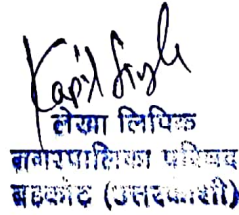 Kapil Singh
लेखा लिपिक
नगरपालिका परिषद
बड़कोट (उत्तरकाशी)